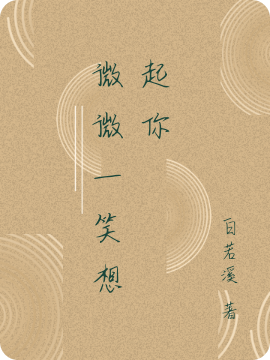 微微一笑想
起你
白若溪 著